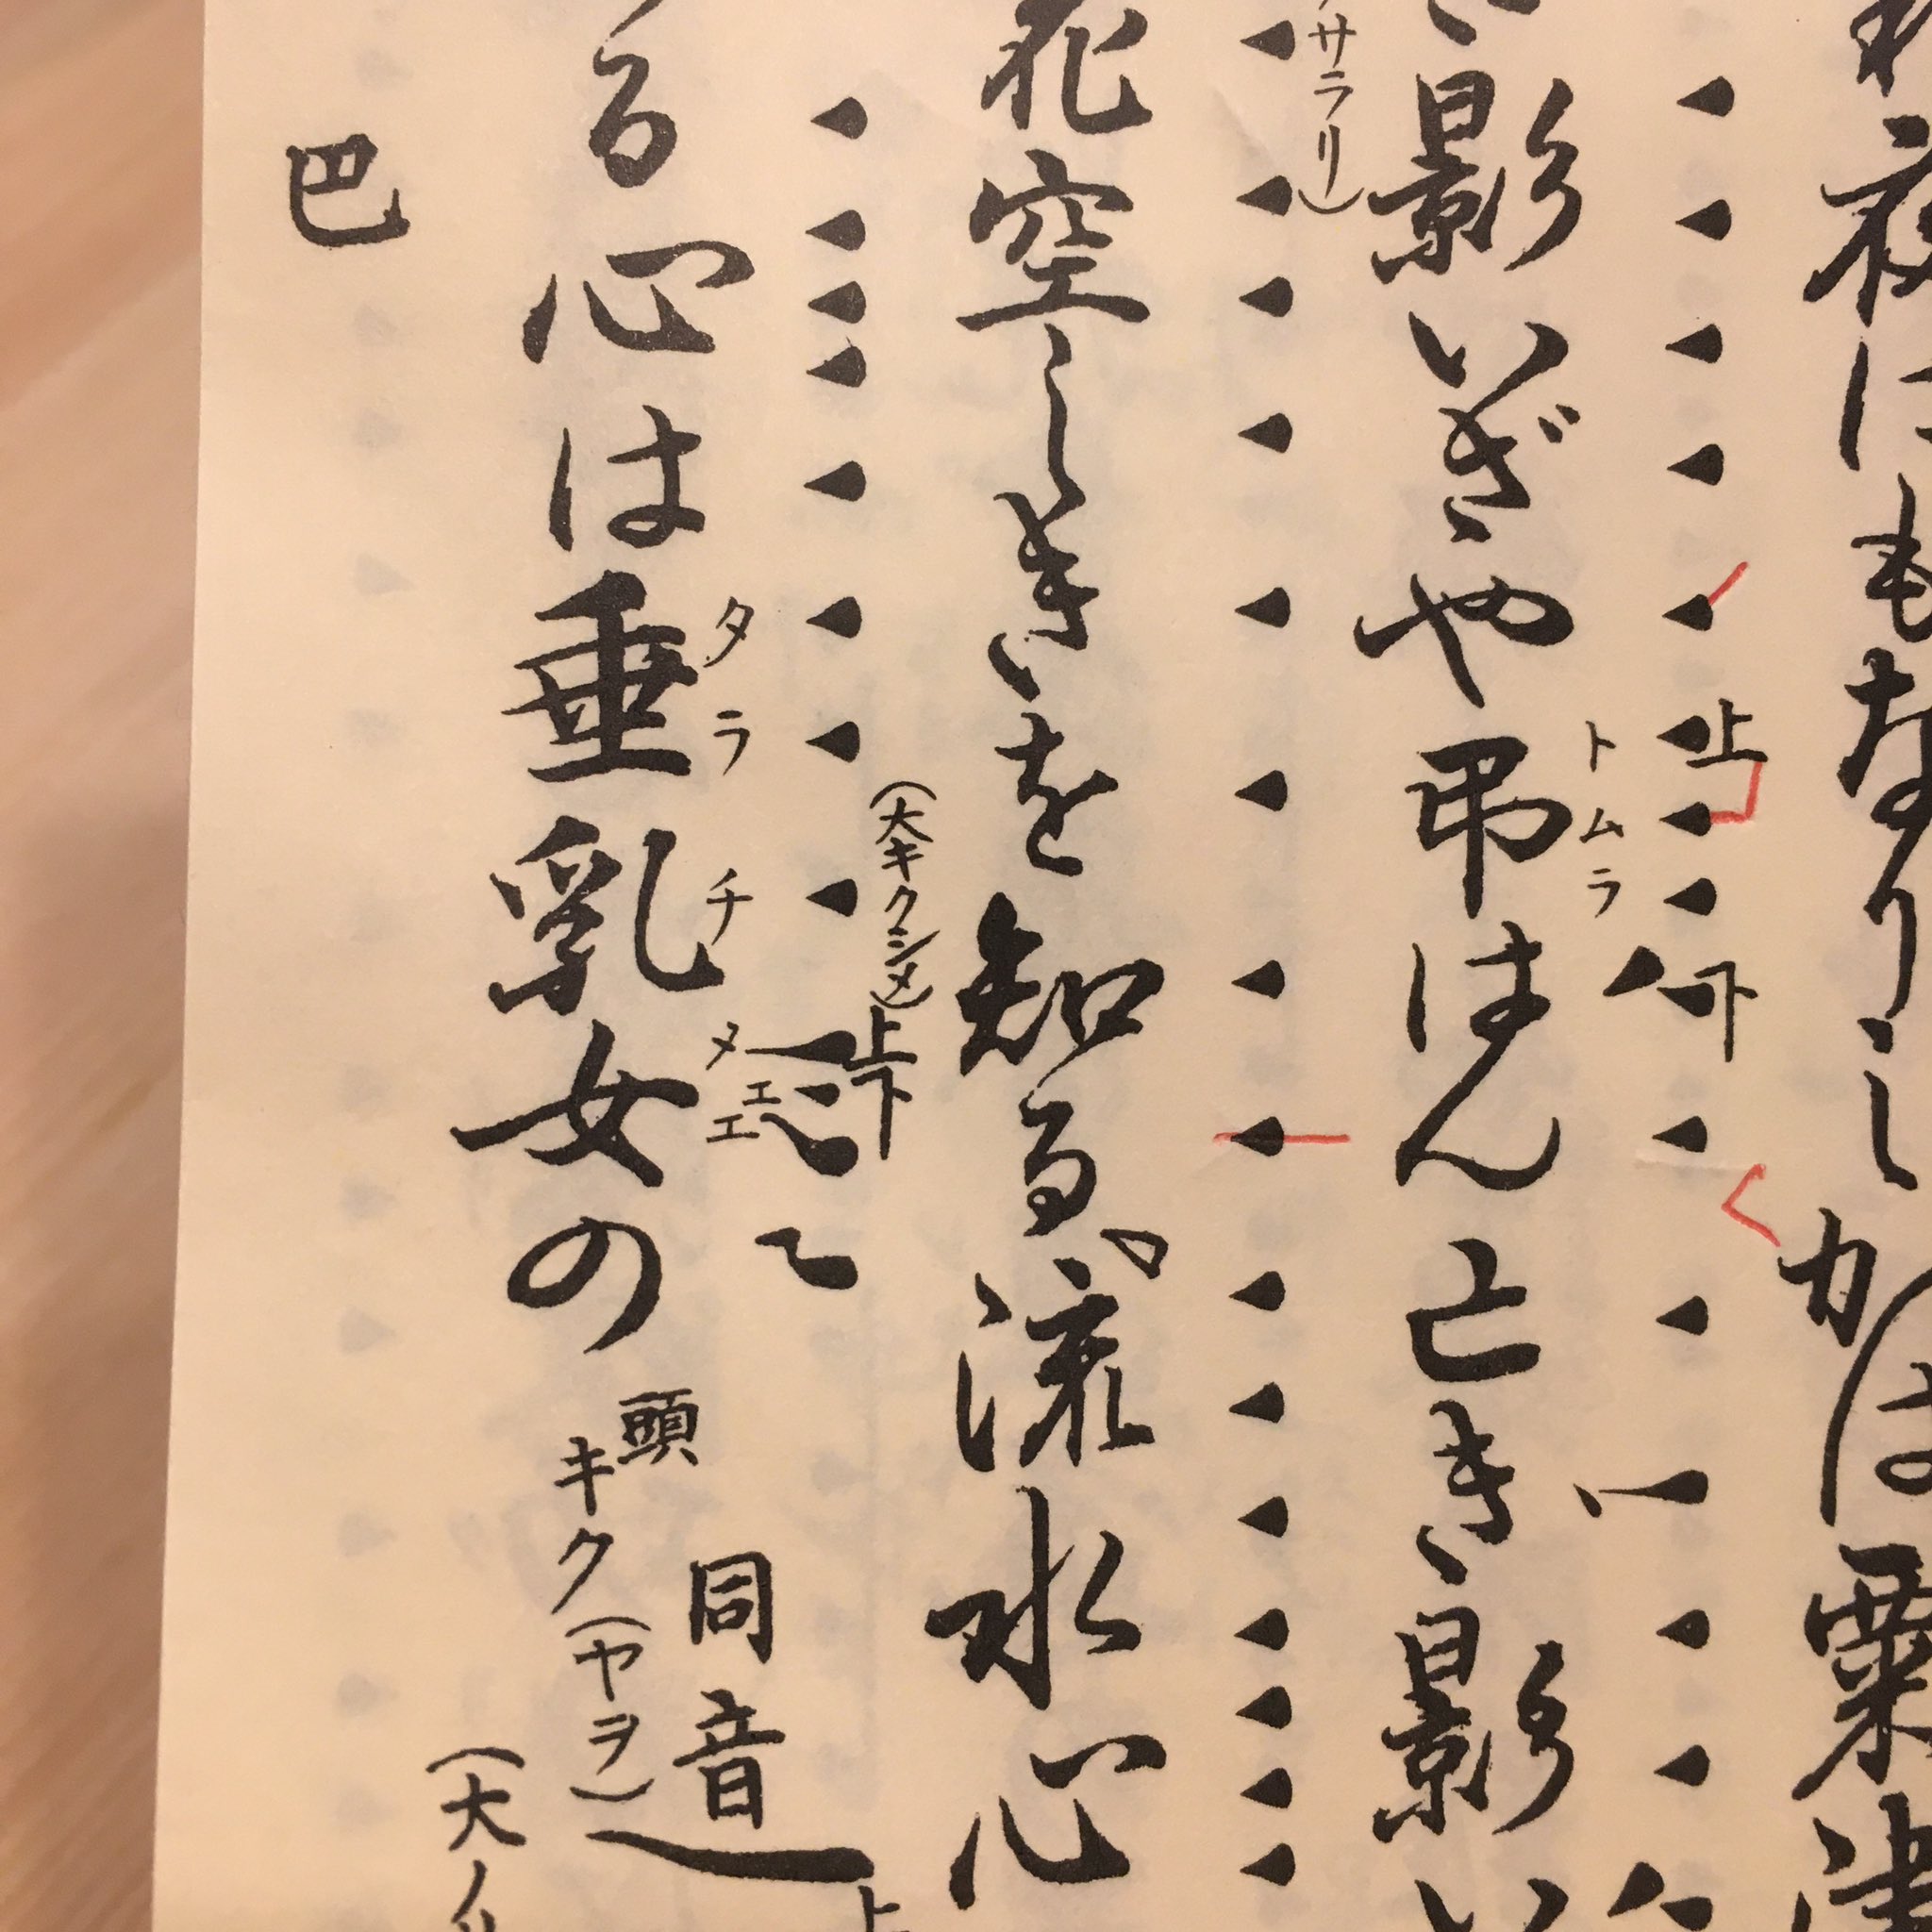 夜にもなりしかば粟津
サラリ)
影いざや弔はん亡き影い
トムラ
止
下
花空しきを知る、流水心
(大キクシメ)
上下
る心は垂乳女の
タラチメエエ
頭
同音
キク(ヤヲ)
上
(大ノリ
巴